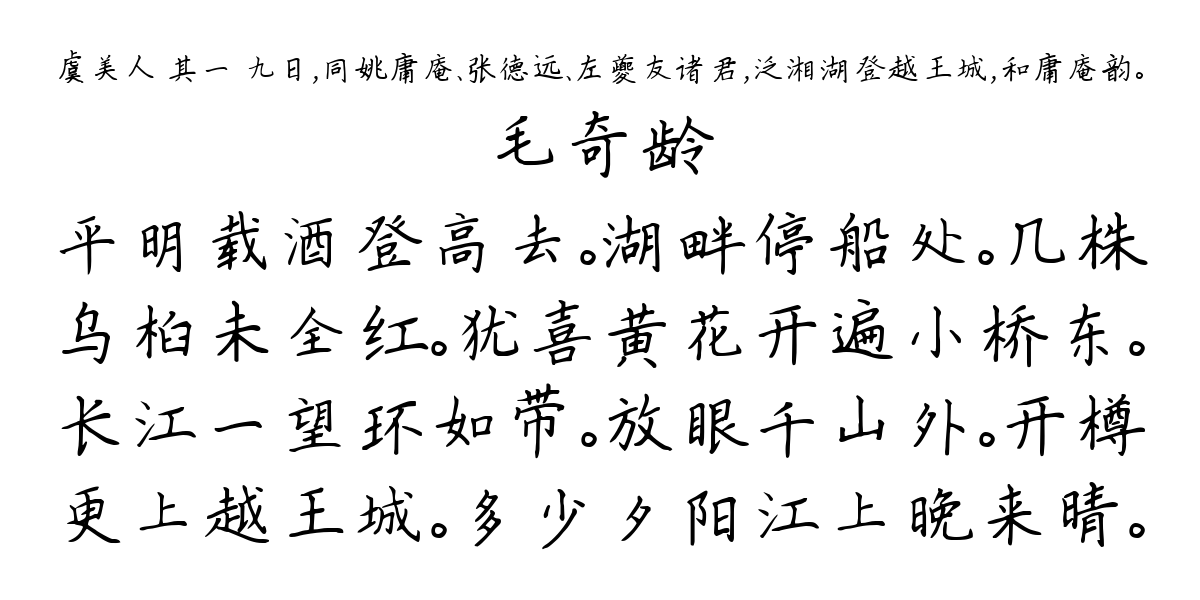 虞美人 其一 九日,同姚庸庵、张德远、左夔友诸君,泛湘湖登越王城,和庸庵韵。
毛奇龄
平明载酒登高去。湖畔停船处。几株
乌桕未全红。犹喜黄花开遍小桥东。
长江一望环如带。放眼千山外。开樽
更上越王城。多少夕阳江上晚来晴。